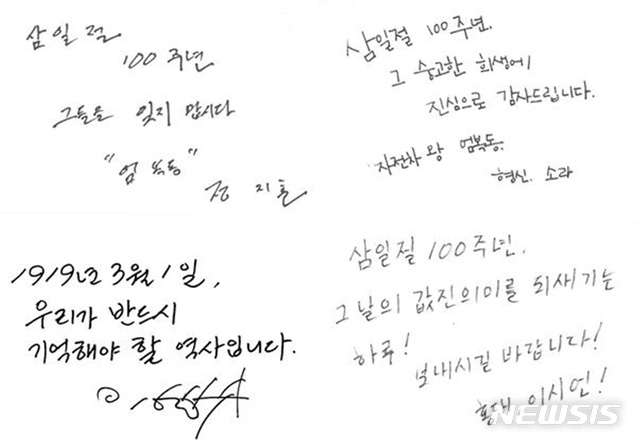 삼일절
100주년
그들을 잊지 맙시다
"엄복동"
정지훈
삼일절 100주년.
그 숭고한 희생에
진심으로 감사드립니다.
자전차왕 엄복동.
형신. 소라
1919년 3월 1일,
우리가 반드시
기억해야 할 역사입니다.
삼일절 100주년.
그 날의 값진의미를 되새기는
하루!
보내시길 바랍니다!
황재 이시언!
NEWSIS